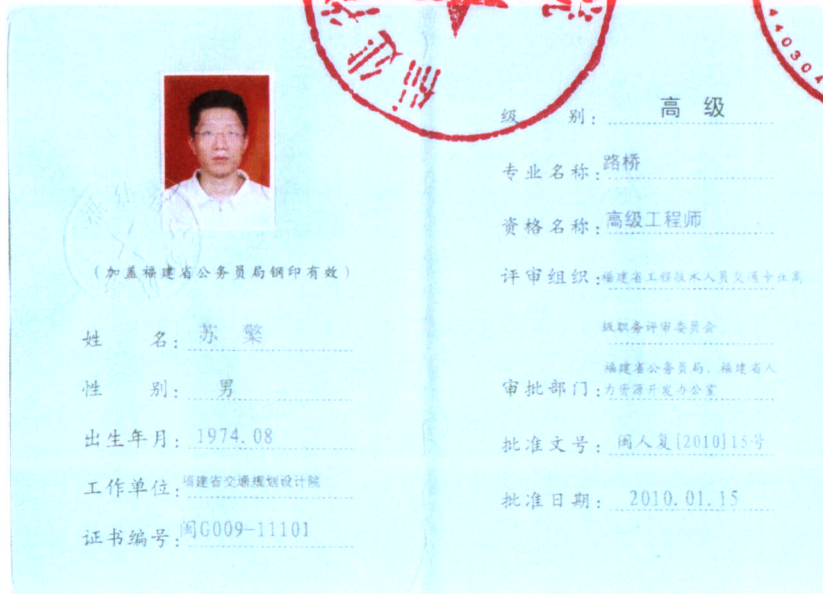 (加盖福建省公务员局钢印有效)
姓 名: 苏 檠
性 别: 男
出生年月: 1974.08
工作单位: 福建省交通规划设计院
证书编号: 闽G009-11101
福建
44030
级 别: 高 级
专业名称: 路桥
资格名称: 高级工程师
评审组织: 福建省工程技术人员交通专业高
级职务评审委员会
福建省公务员局、福建省人
审批部门: 力资源开发办公室
批准文号: 闽人复[2010]15号
批准日期: 2010.01.15